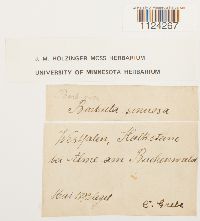 1124267
J. M. HOLZINGER MOSS HERBARIUM
UNIVERSITY OF MINNESOTA HERBARIUM
Barbula sinuosa
Westfalen, Kalksteine
bei am Buchenwald
C. Grebe